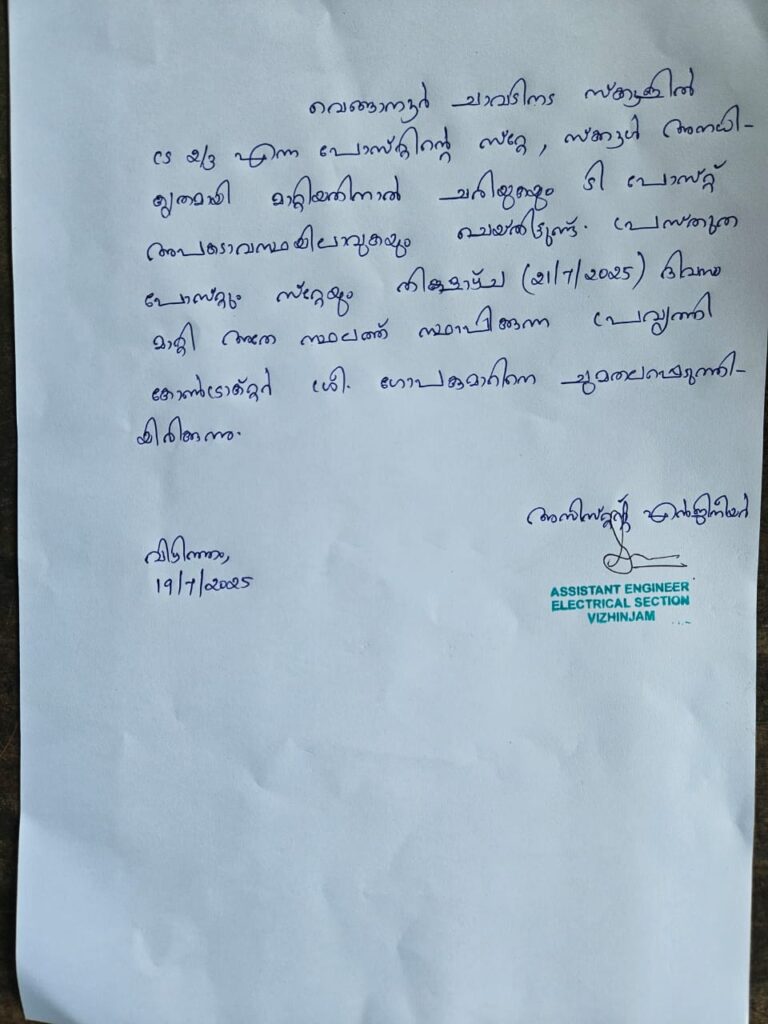 വെങ്ങാനൂർ ചാവടിനട സ്ക്കൂളിൽ
CS 2/3 എന്ന പോസ്റ്റിന്റെ സ്റ്റേ, സ്ക്കൂൾ അനധി-
കൃതമായി മാറ്റിയതിനാൽ ചരിയുകയും ടി പോസ്റ്റ്
അപകടാവസ്ഥയിലാവുകയും ചെയ്തിട്ടുണ്ട്. പ്രസ്തുത
പോസ്റ്റും സ്റ്റേയും തിങ്കളാഴ്ച (21/7/2025) ദിവസം
മാറ്റി അതേ സ്ഥലത്ത് സ്ഥാപിക്കുന്ന പ്രവൃത്തി
കോൺട്രാക്റ്റർ ശ്രീ. ഗോപകുമാറിനെ ചുമതലപ്പെടുത്തി-
യിരിക്കുന്നു.
അസിസ്റ്റന്റ് എൻജിനീയർ
വിഴിഞ്ഞം,
19/7/2025
ASSISTANT ENGINEER
ELECTRICAL SECTION
VIZHINJAM